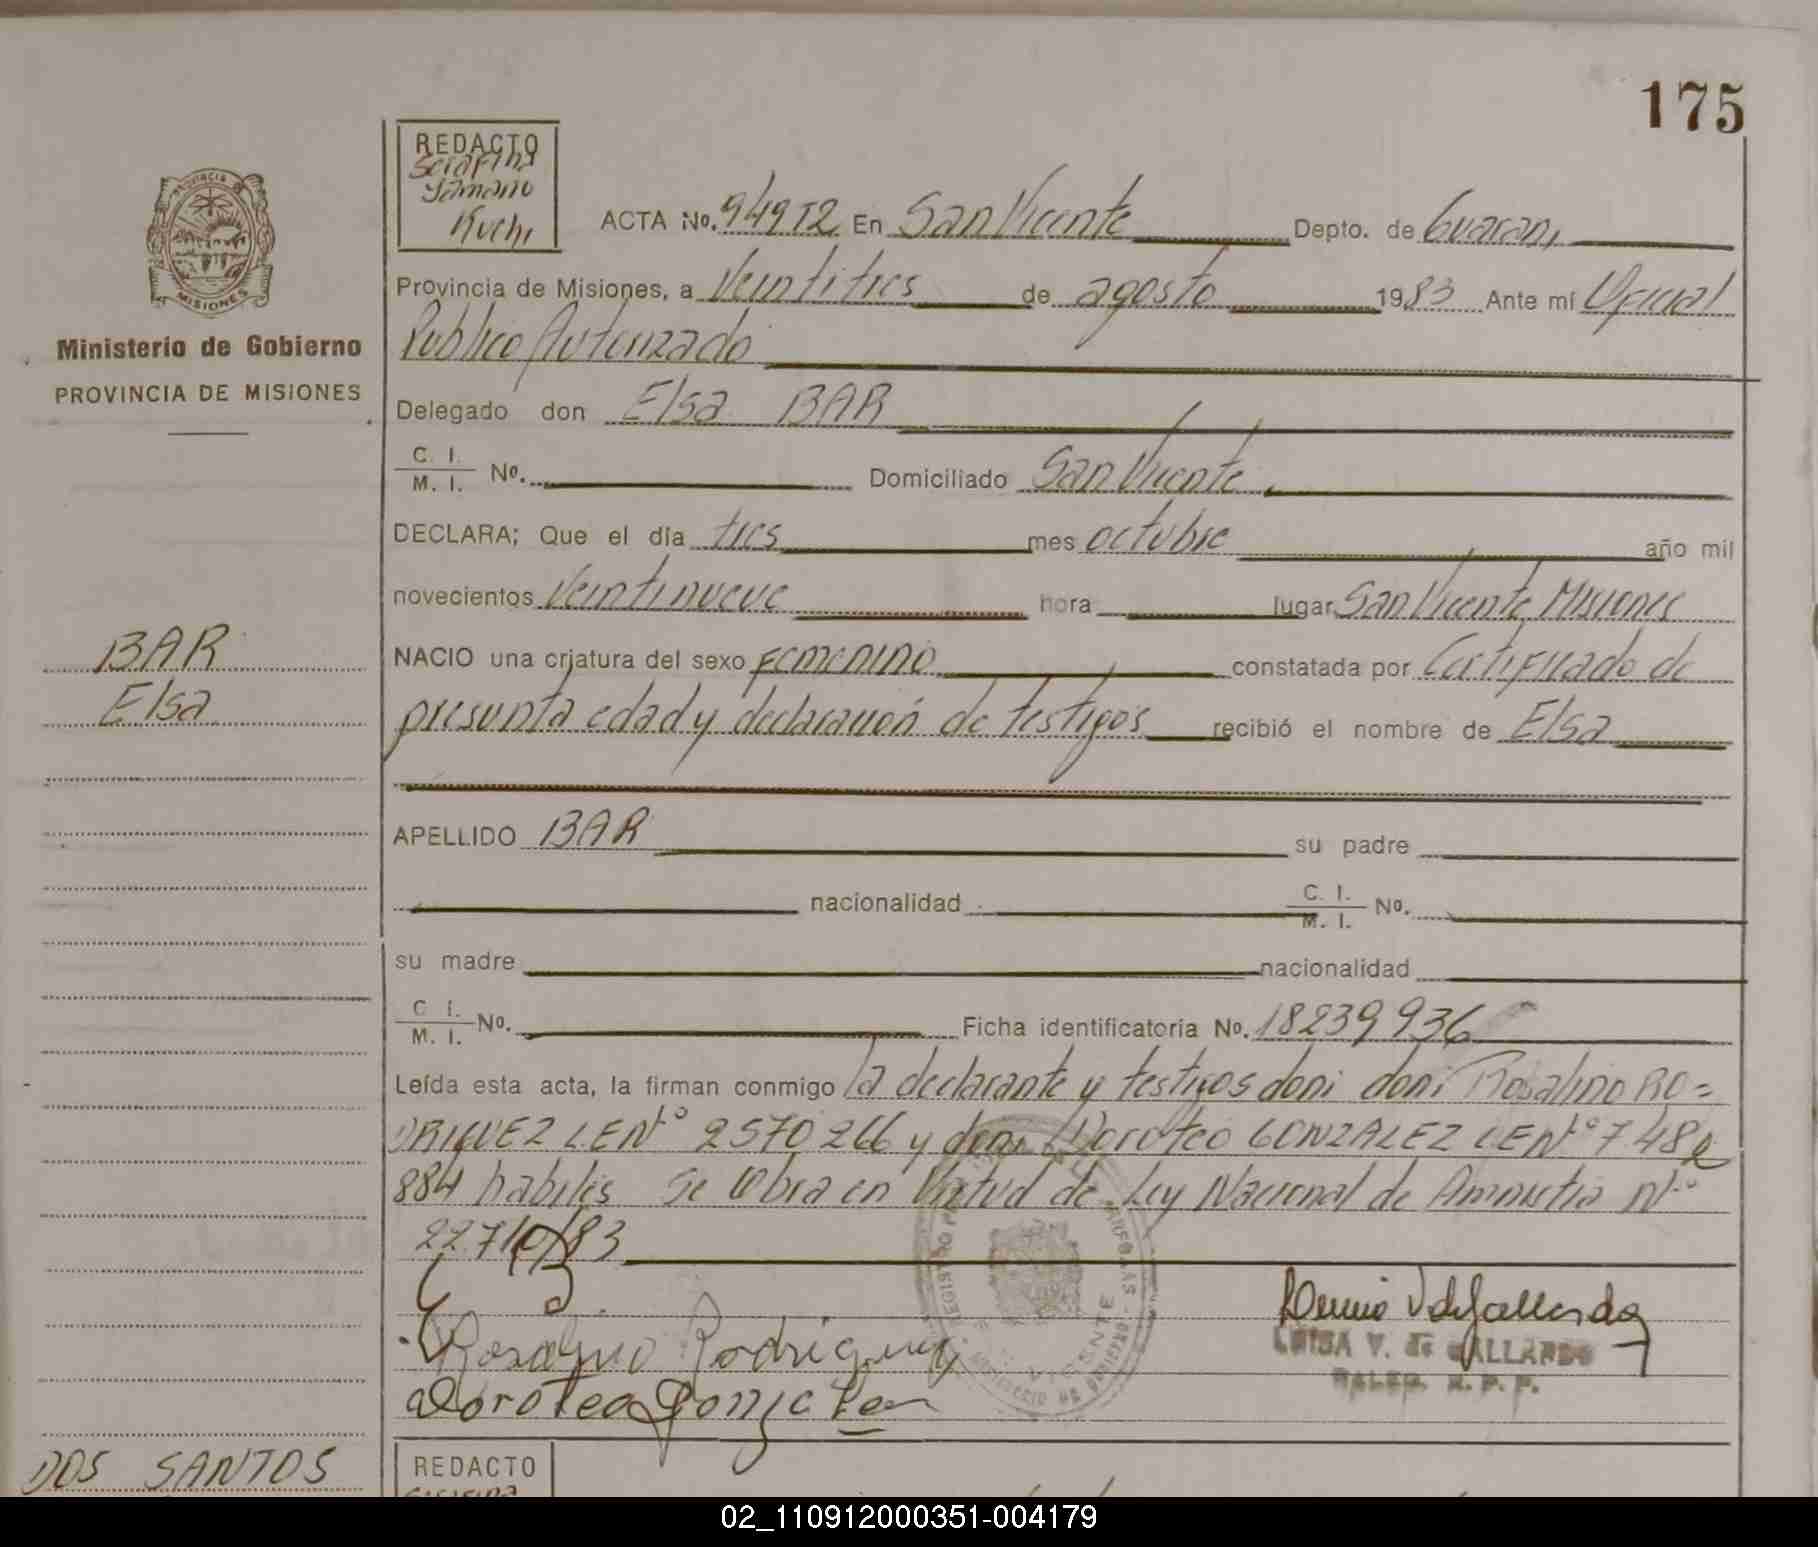 175
REDACTO
Serafina
Kuchi
PROVINCIA DE
MISIONES
Ministerio de Gobierno
PROVINCIA DE MISIONES
ACTA No. En San Vicente Depto. de Guarani
Provincia de Misiones, a Veintitres de agosto 1983 Ante mí Oficial
Publico Autorizado
Delegado don Elsa BAR
C. I.
M. I. No. Domiciliado San Vicente.
DECLARA; Que el día tres mes octubre año mil
novecientos Veintinueve hora lugar San Vicente Misiones
BAR
Elsa
NACIO una criatura del sexo Femenino constatada por Certificado de
presunta edad y declaración de testigos recibió el nombre de Elsa
APELLIDO BAR su padre
nacionalidad C. I.
M. I. No.
su madre nacionalidad
C. I.
M. I. No. Ficha identificatoria No. 18239936
Leída esta acta, la firman conmigo la declarante y testigos doni doni Rosalino RO=
DRIGUEZ LE Nº 2570266 y doni Doroteo GONZALEZ LE Nº 748
884 habiles Se Obra en Virtud de Ley Nacional de Amnistia Nº
22710/83
Rosalino Rodriguez
Doroteo Gonzalez
LUISA V. de GALLARDO
DOS SANTOS
REDACTO
02_110912000351-004179